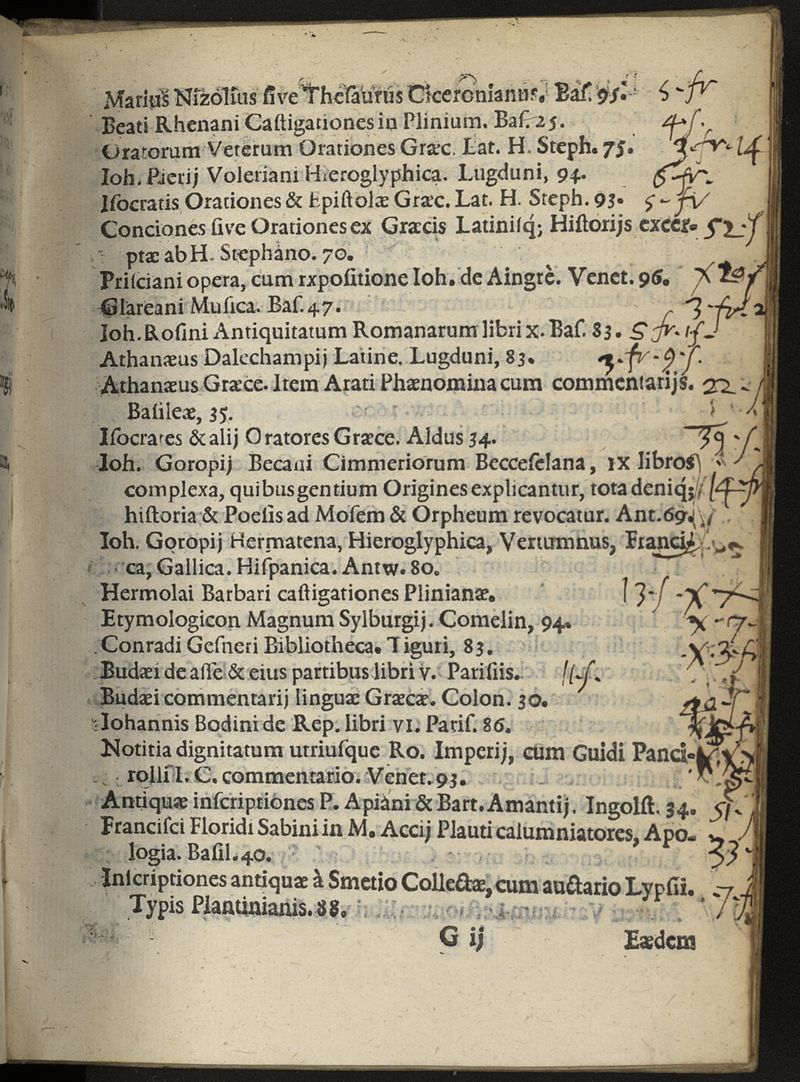 Marius Nizolius ſive Theſaurus Ciceronianus. Baſ. 95. 5-fr
Beati Rhenani Caſtigationes in Plinium. Baſ. 25. 4-ſ.
Oratorum Veterum Orationes Græc. Lat. H. Steph. 75. 3-fr-14
Ioh. Pierij Voleriani Hieroglyphica. Lugduni, 94. 6-fr-
Iſocratis Orationes & Epiſtolæ Græc. Lat. H. Steph. 93. 5-fr
Conciones ſive Orationes ex Græcis Latiniſq; Hiſtorijs excer- 52-ſ
ptæ ab H. Stephano. 70.
Priſciani opera, cum rxpoſitione Ioh. de Aingre. Venet. 96.
Glareani Muſica. Baſ. 47. 3-fr-2
Ioh. Roſini Antiquitatum Romanarum libri x. Baſ. 83. 5 fr. 1ſ-
Athanæus Dalechampij Latine. Lugduni, 83. 3-fr-9-ſ.
Athanæus Græce. Item Arati Phænomina cum commentarijs. 22-ſ
Baſileæ, 35.
Iſocrates & alij Oratores Græce. Aldus 34. 39-ſ.
Ioh. Goropij Becani Cimmeriorum Beccefelana, IX libros
complexa, quibus gentium Origines explicantur, tota deniq; 14-fr
hiſtoria & Poeſis ad Moſem & Orpheum revocatur. Ant. 69.
Ioh. Goropij Hermatena, Hieroglyphica, Vertumnus, Franciſ-
ca, Gallica. Hiſpanica. Antw. 80.
Hermolai Barbari caſtigationes Plinianæ. 13-ſ
Etymologicon Magnum Sylburgij. Comelin, 94. X-7-
Conradi Geſneri Bibliotheca. Tiguri, 83. X-3-ſ
Budæi de aſſe & eius partibus libri v. Pariſiis. 11-ſ.
Budæi commentarij linguæ Græcæ. Colon. 30.
Iohannis Bodini de Rep. libri VI. Pariſ. 86.
Notitia dignitatum utriuſque Ro. Imperij, cum Guidi Panci-
rolli I. C. commentario. Venet. 93.
Antiquæ inſcriptiones P. Apiani & Bart. Amantij. Ingolſt. 34. 51-
Franciſci Floridi Sabini in M. Accij Plauti calumniatores, Apo-
logia. Baſil. 40. 33
Inſcriptiones antiquæ à Smetio Collectæ, cum auctario Lypſii. 7-
Typis Plantinianis. 88.
G ij Eædem